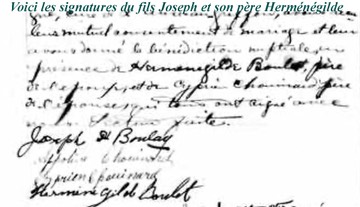 Voici les signatures du fils Joseph et son père Herménégilde
leur mutuel consentement de mariage et leur
avons donné la bénédiction nuptiale en
présence de Herménégilde Boulet, père
de l'époux, et de Cyprien Chouinard père
de l'épouse, qui tous ont signé avec
lecture faite.
Joseph H Boulay
Chouinard
Cyprien Chouinard
Herméné Gilde Boulet